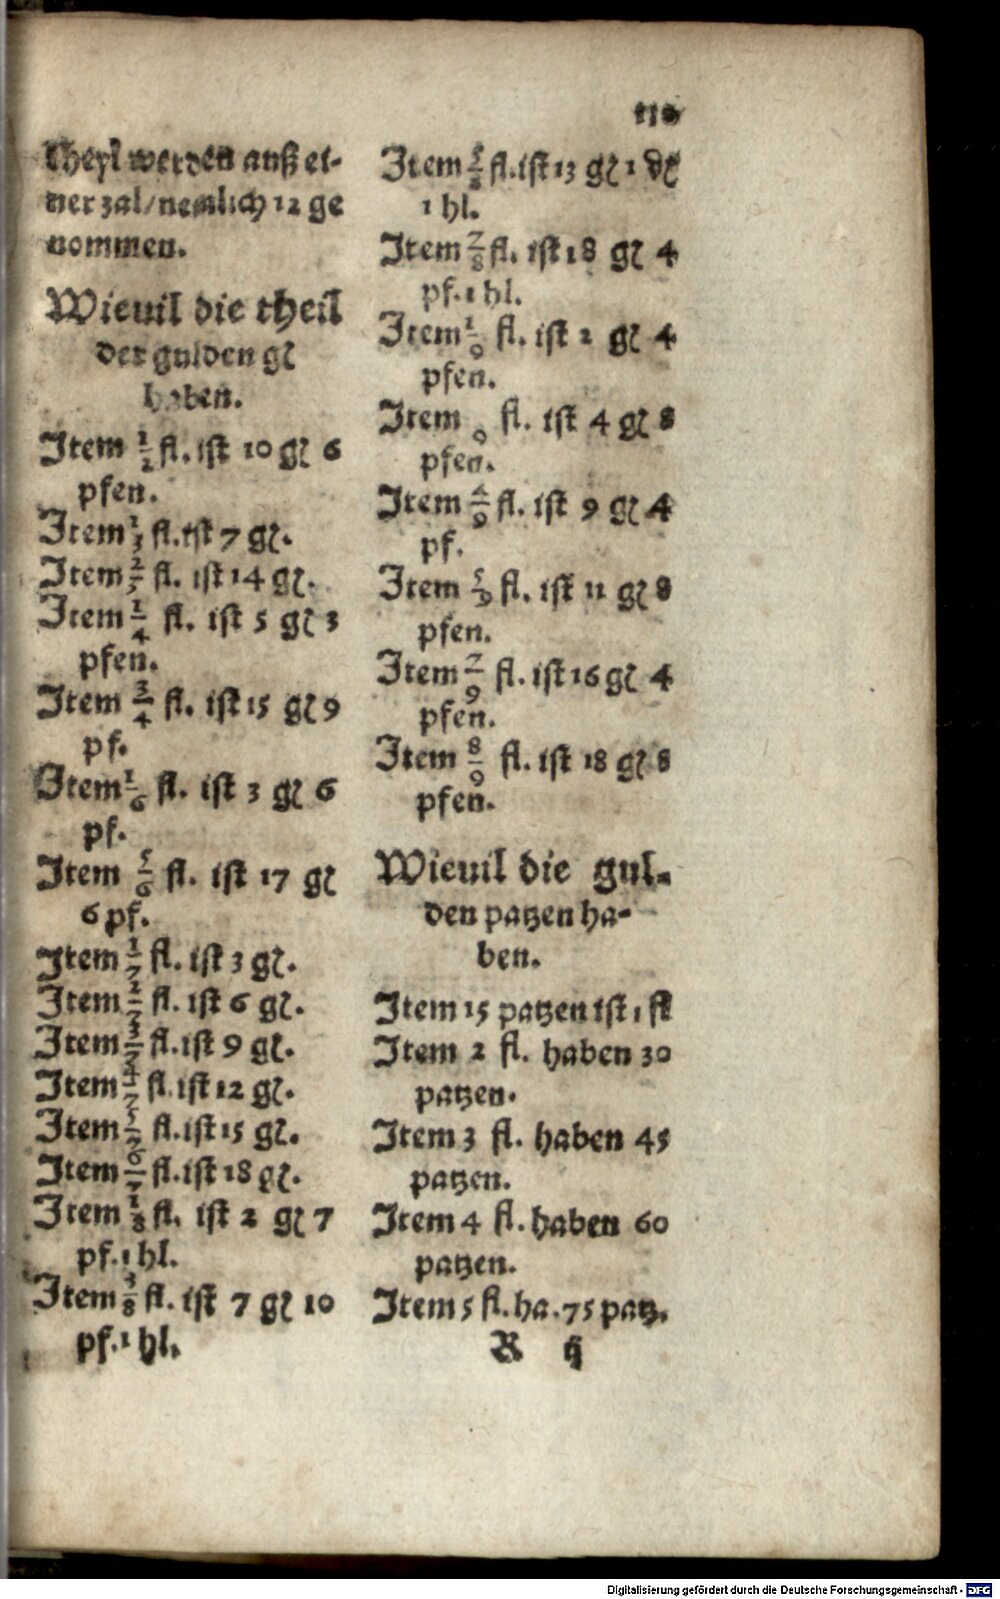 110
theyl werden auß ei-
ner zal/nemlich 12 ge
nommen.
Wieuil die theil
der gulden gl
haben.
Item 1/2 fl. ist 10 gl 6
pfen.
Item 1/3 fl. ist 7 gl.
Item 2/3 fl. ist 14 gl.
Item 1/4 fl. ist 5 gl 3
pfen.
Item 3/4 fl. ist 15 gl 9
pf.
Item 1/6 fl. ist 3 gl 6
pf.
Item 5/6 fl. ist 17 gl
6 pf.
Item 1/7 fl. ist 3 gl.
Item 2/7 fl. ist 6 gl.
Item 3/7 fl. ist 9 gl.
Item 4/7 fl. ist 12 gl.
Item 5/7 fl. ist 15 gl.
Item 6/7 fl. ist 18 gl.
Item 1/8 fl. ist 2 gl 7
pf. 1 hl.
Item 3/8 fl. ist 7 gl 10
pf. 1 hl.
Item 5/8 fl. ist 13 gl 1 dl
1 hl.
Item 7/8 fl. ist 18 gl 4
pf. 1 hl.
Item 1/9 fl. ist 2 gl 4
pfen.
Item /9 fl. ist 4 gl 8
pfen.
Item 4/9 fl. ist 9 gl 4
pf.
Item 5/9 fl. ist 11 gl 8
pfen.
Item 7/9 fl. ist 16 gl 4
pfen.
Item 8/9 fl. ist 18 gl 8
pfen.
Wieuil die gul-
den patzen ha-
ben.
Item 15 patzen ist 1 fl
Item 2 fl. haben 30
patzen.
Item 3 fl. haben 45
patzen.
Item 4 fl. haben 60
patzen.
Item 5 fl. ha. 75 patz.
R ij
Digitalisierung gefördert durch die Deutsche Forschungsgemeinschaft - DFG